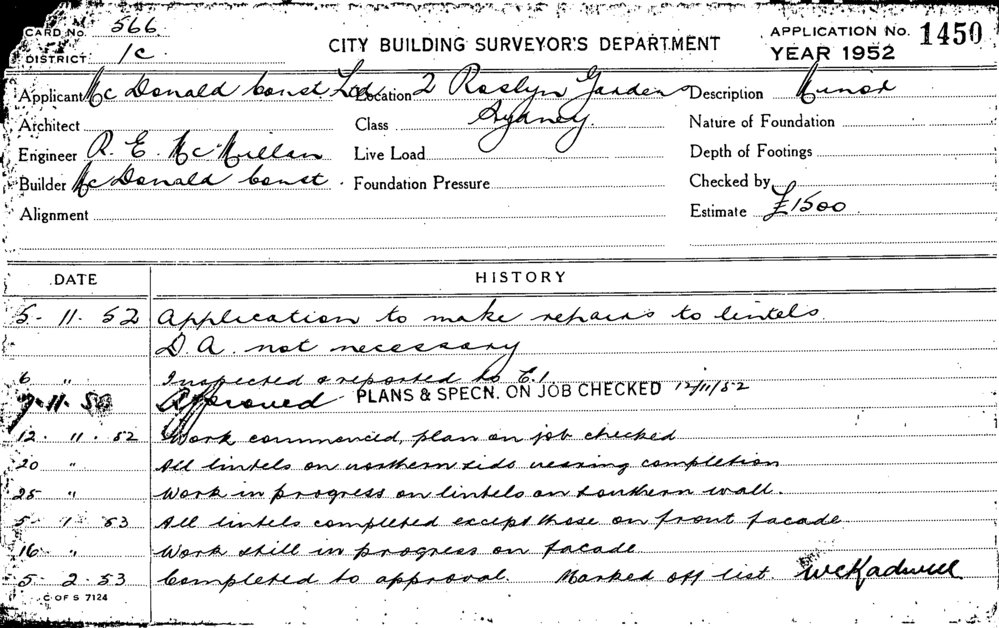 CARD No. 566
DISTRICT. 1C
CITY BUILDING SURVEYOR'S DEPARTMENT
APPLICATION No. 1450
YEAR 1952
Applicant Mc Donald Const Ltd Location 2 Roslyn Gardens Description Minor
Architect Class Sydney. Nature of Foundation
Engineer R. E. McMillan Live Load Depth of Footings
Builder McDonald Const. Foundation Pressure Checked by
Alignment Estimate £1500
DATE HISTORY
5 - 11. 52 Application to make repairs to lintels
D.A. not necessary
6 " Inspected & reported to E.1
7-11- Approved PLANS & SPECN. ON JOB CHECKED 12/11/52
12. 11. 52 Work commenced, plan on job checked
20 " All lintels on northern side nearing completion
25 " Work in progress on lintels on southern wall.
5 - 1 53 All lintels completed except those on front facade
16 " Work still in progress on facade
5. 2. 53 Completed to approval. Marked off list. WCKadwell
C OF S 7124